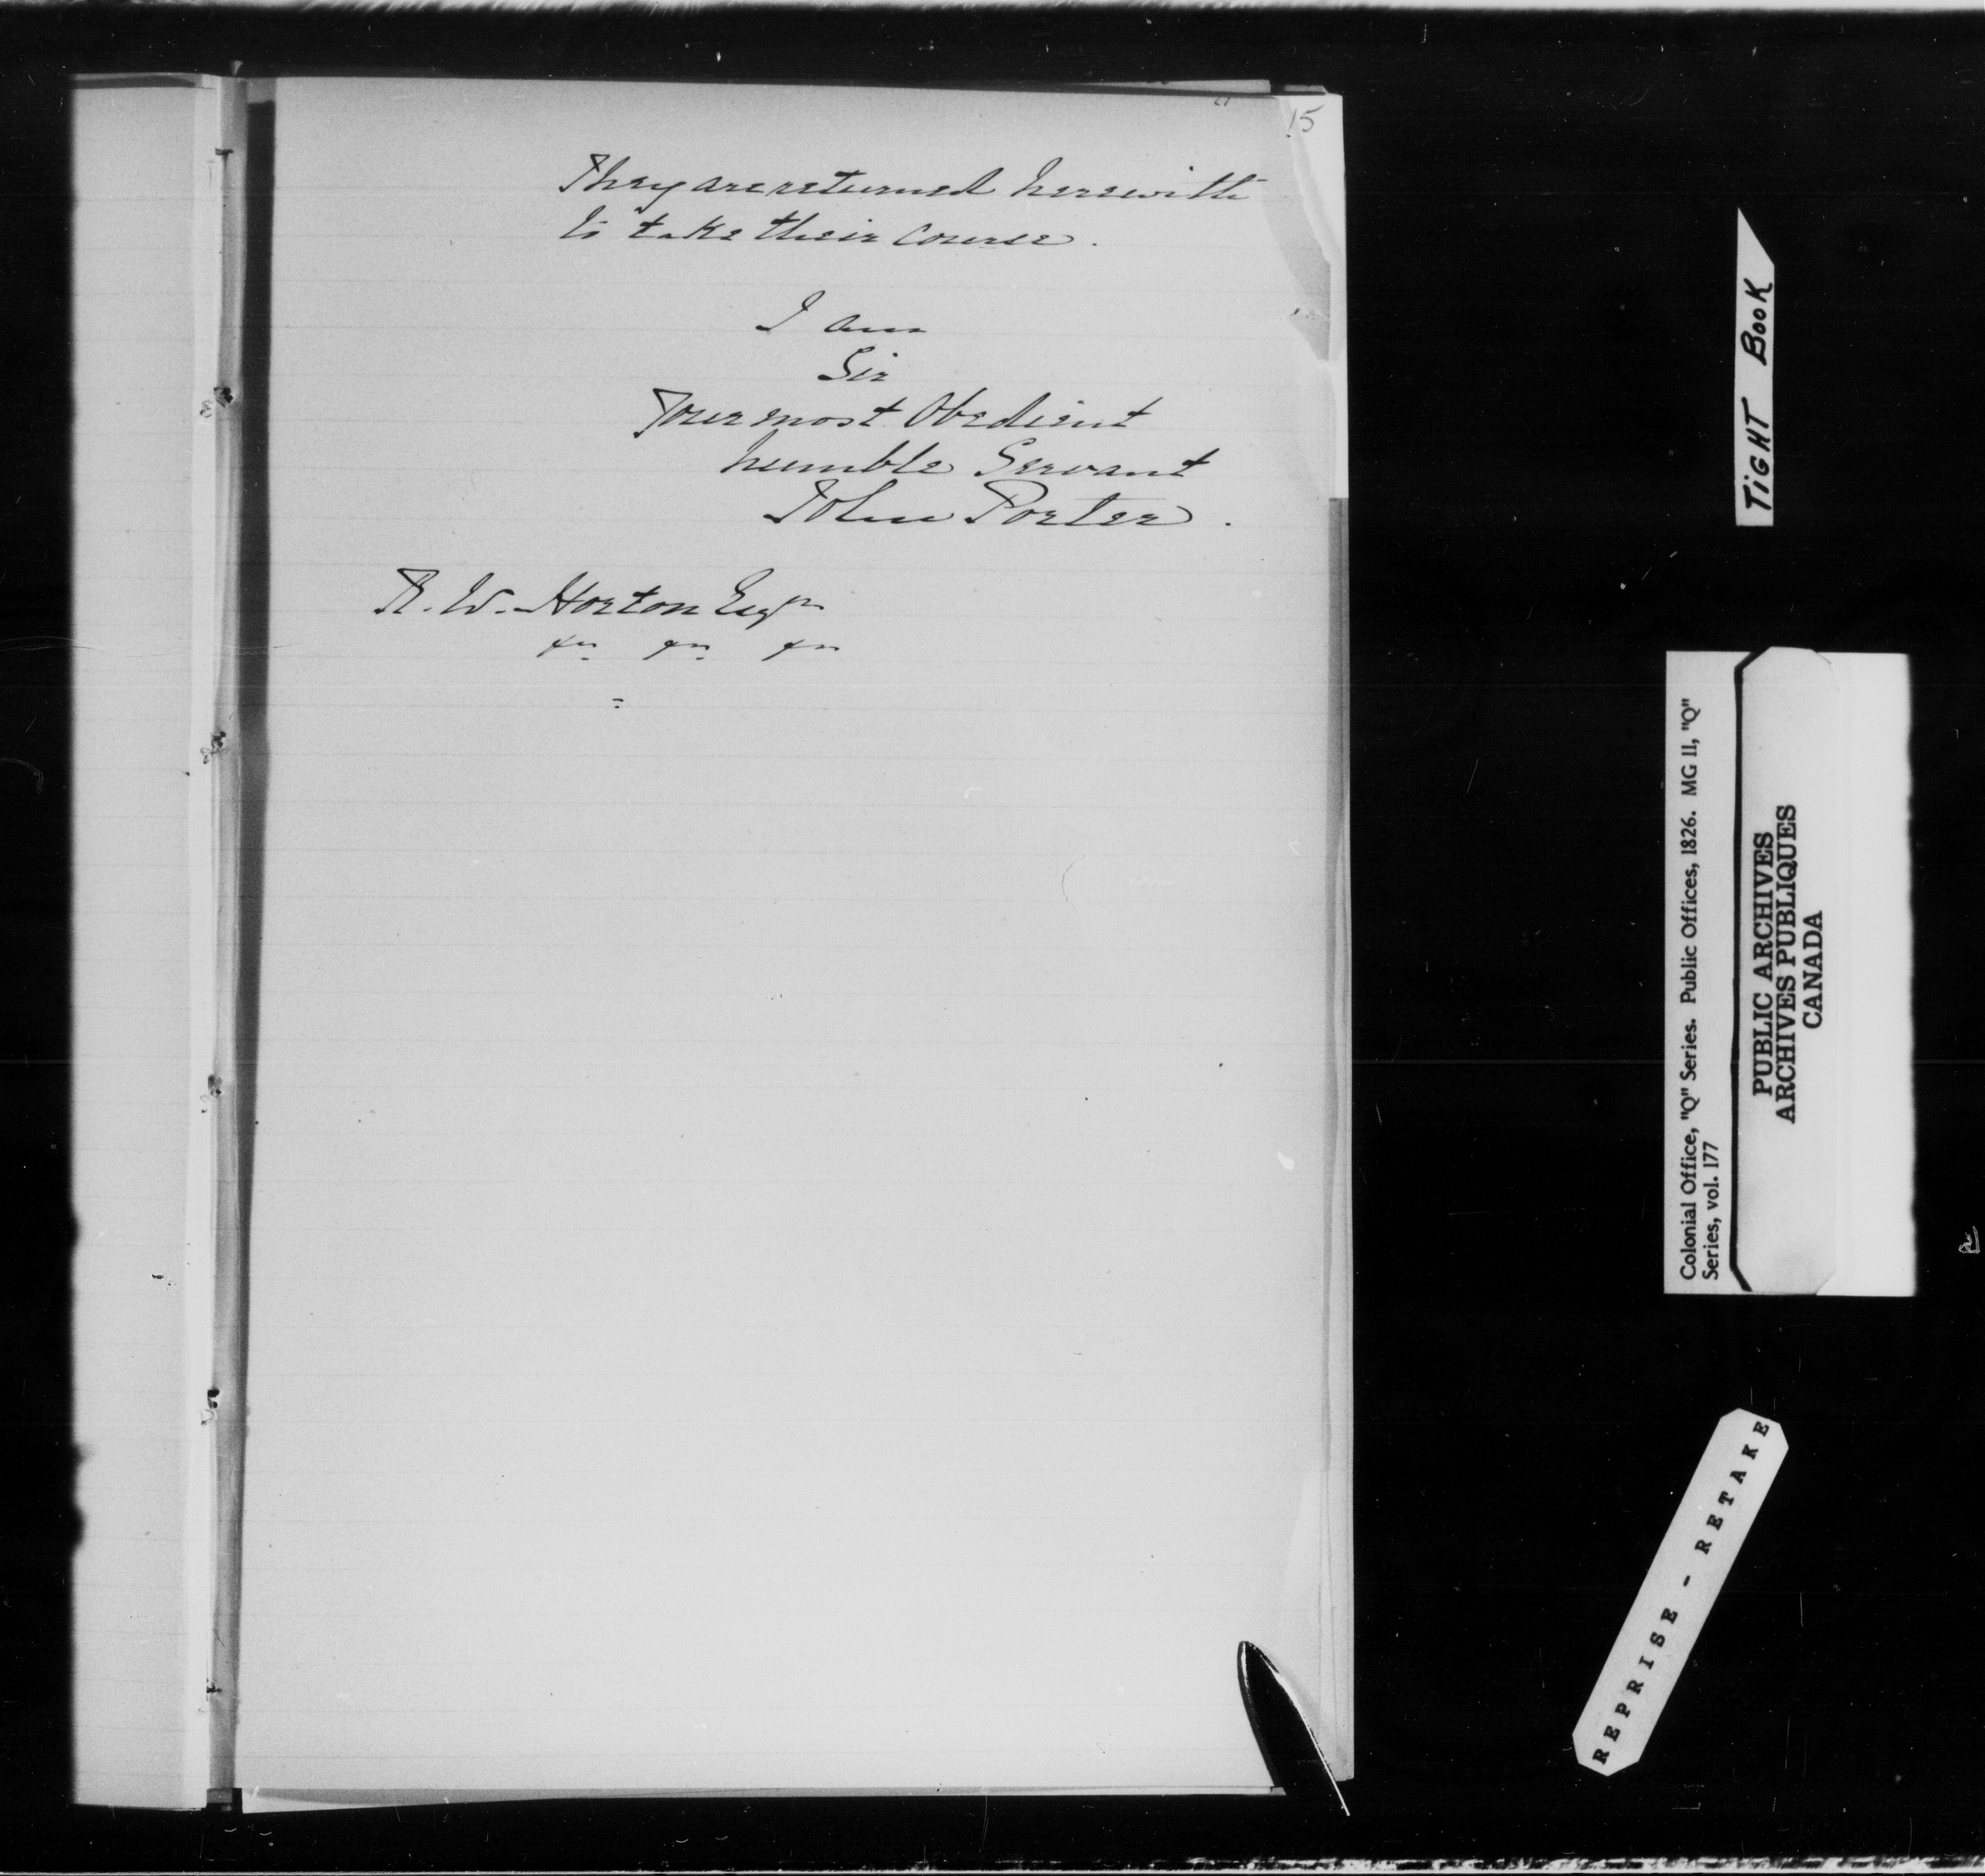 15
They are returned herewith
to take their course.
I am
Sir
Your most Obedient
humble Servant
John Porter.
R. W. Horton Esqr
&c &c &c
TiGHT BooK
Colonial Office, "Q" Series. Public Offices, 1826. MG 11, "Q"
Series, vol. 177
PUBLIC ARCHIVES
ARCHIVES PUBLIQUES
CANADA
REPRISE - RETAKE